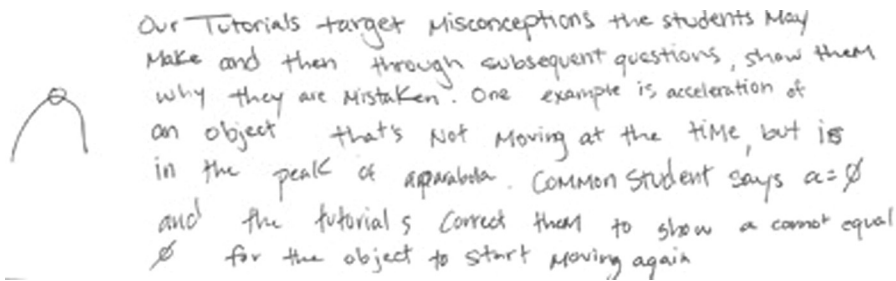 Our Tutorials target Misconceptions the students May
Make and then through subsequent questions, show them
why they are Mistaken. One example is acceleration of
an object that's Not Moving at the time, but is
in the peak of a parabola. Common Student says a=∅
and the tutorials correct them to show a cannot equal
∅ for the object to start Moving again